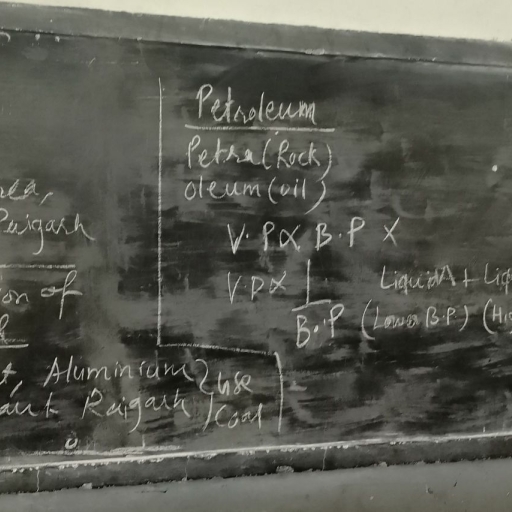 Petroleum
Petra (Rock)
oleum (oil)
V. P ∝ B. P X
V. P ∝ 1
B. P
Liquid A + Liq
(Lower B.P) (Hi
Raigarh
ion of
t, Aluminium } Use
Raigarh } Coal